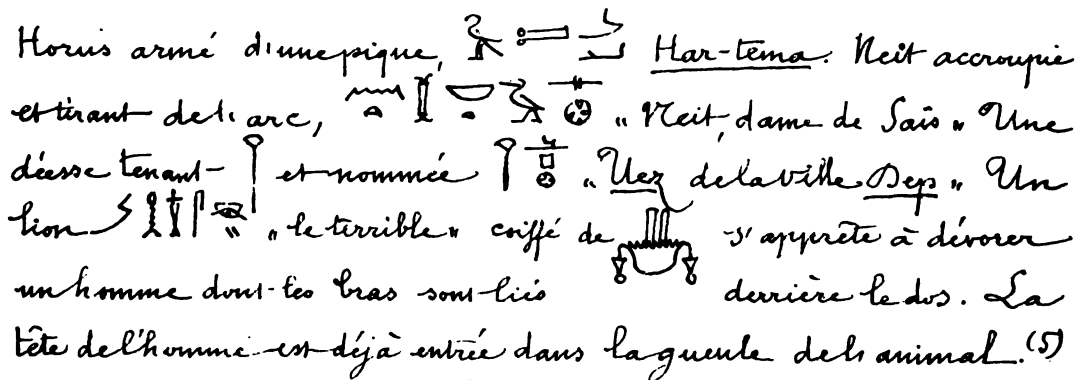 Horus armé d'une pique, Har-tema. Neit accroupie
et tirant de l'arc, „ Neit, dame de Saïs „ Une
déesse tenant et nommée „ Uez de la ville Dep „ Un
lion „ le terrible „ coiffé de s'apprête à dévorer
un homme dont les bras sont liés derrière le dos. La
tête de l'homme est déjà entrée dans la gueule de l'animal. (5)